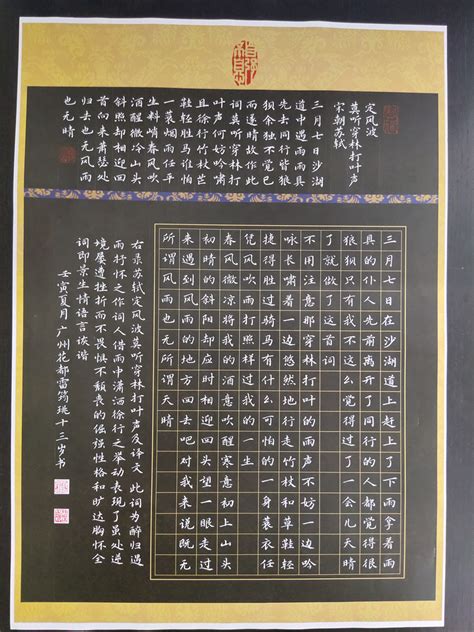 定风波
莫听穿林打叶声
宋朝苏轼
三月七日沙湖
道中遇雨雨具
先去同行皆狼
狈余独不觉已
而遂晴故作此
词莫听穿林打
叶声何妨吟啸
且徐行竹杖芒
鞋轻胜马谁怕
一蓑烟雨任平
生料峭春风吹
酒醒微冷山头
斜照却相迎回
首向来萧瑟处
归去也无风雨
也无晴
三月七日在沙湖道上赶上了下雨拿着雨
具的仆人先前离开了同行的人都觉得很
狼狈只有我不这么觉得过了一会儿天晴
了就做了这首词
不用注意那穿林打叶的雨声不妨一边吟
咏长啸着一边悠然地行走竹杖和草鞋轻
捷得胜过骑马有什么可怕的一身蓑衣任
凭风吹雨打照样过我的一生
春风微凉将我的酒意吹醒寒意初上山头
初晴的斜阳却应时相迎回头望一眼走过
来遇到风雨的地方回去吧对我来说既无
所谓风雨也无所谓天晴
右录苏轼定风波莫听穿林打叶声及译文 此词为醉归遇
雨抒怀之作词人借雨中潇洒徐行之举动表现了虽处逆
境屡遭挫折而不畏惧不颓丧的倔强性格和旷达胸怀全
词即景生情语言诙谐
壬寅夏月广州花都雷筠珧十三岁书